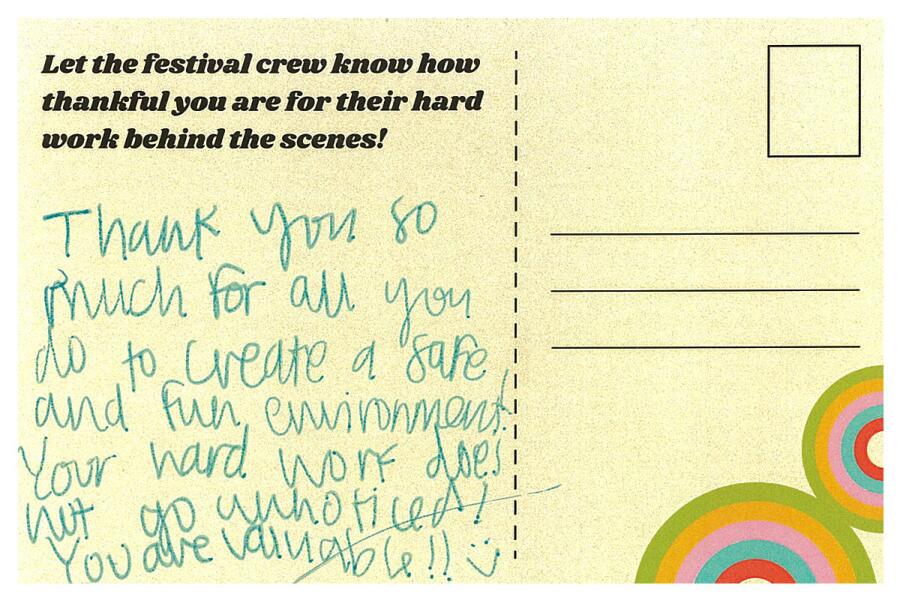 Let the festival crew know how
thankful you are for their hard
work behind the scenes!
Thank you so
much for all you
do to create a safe
and fun environment!
Your hard work does
not go unnoticed!
You are valuable!! :)